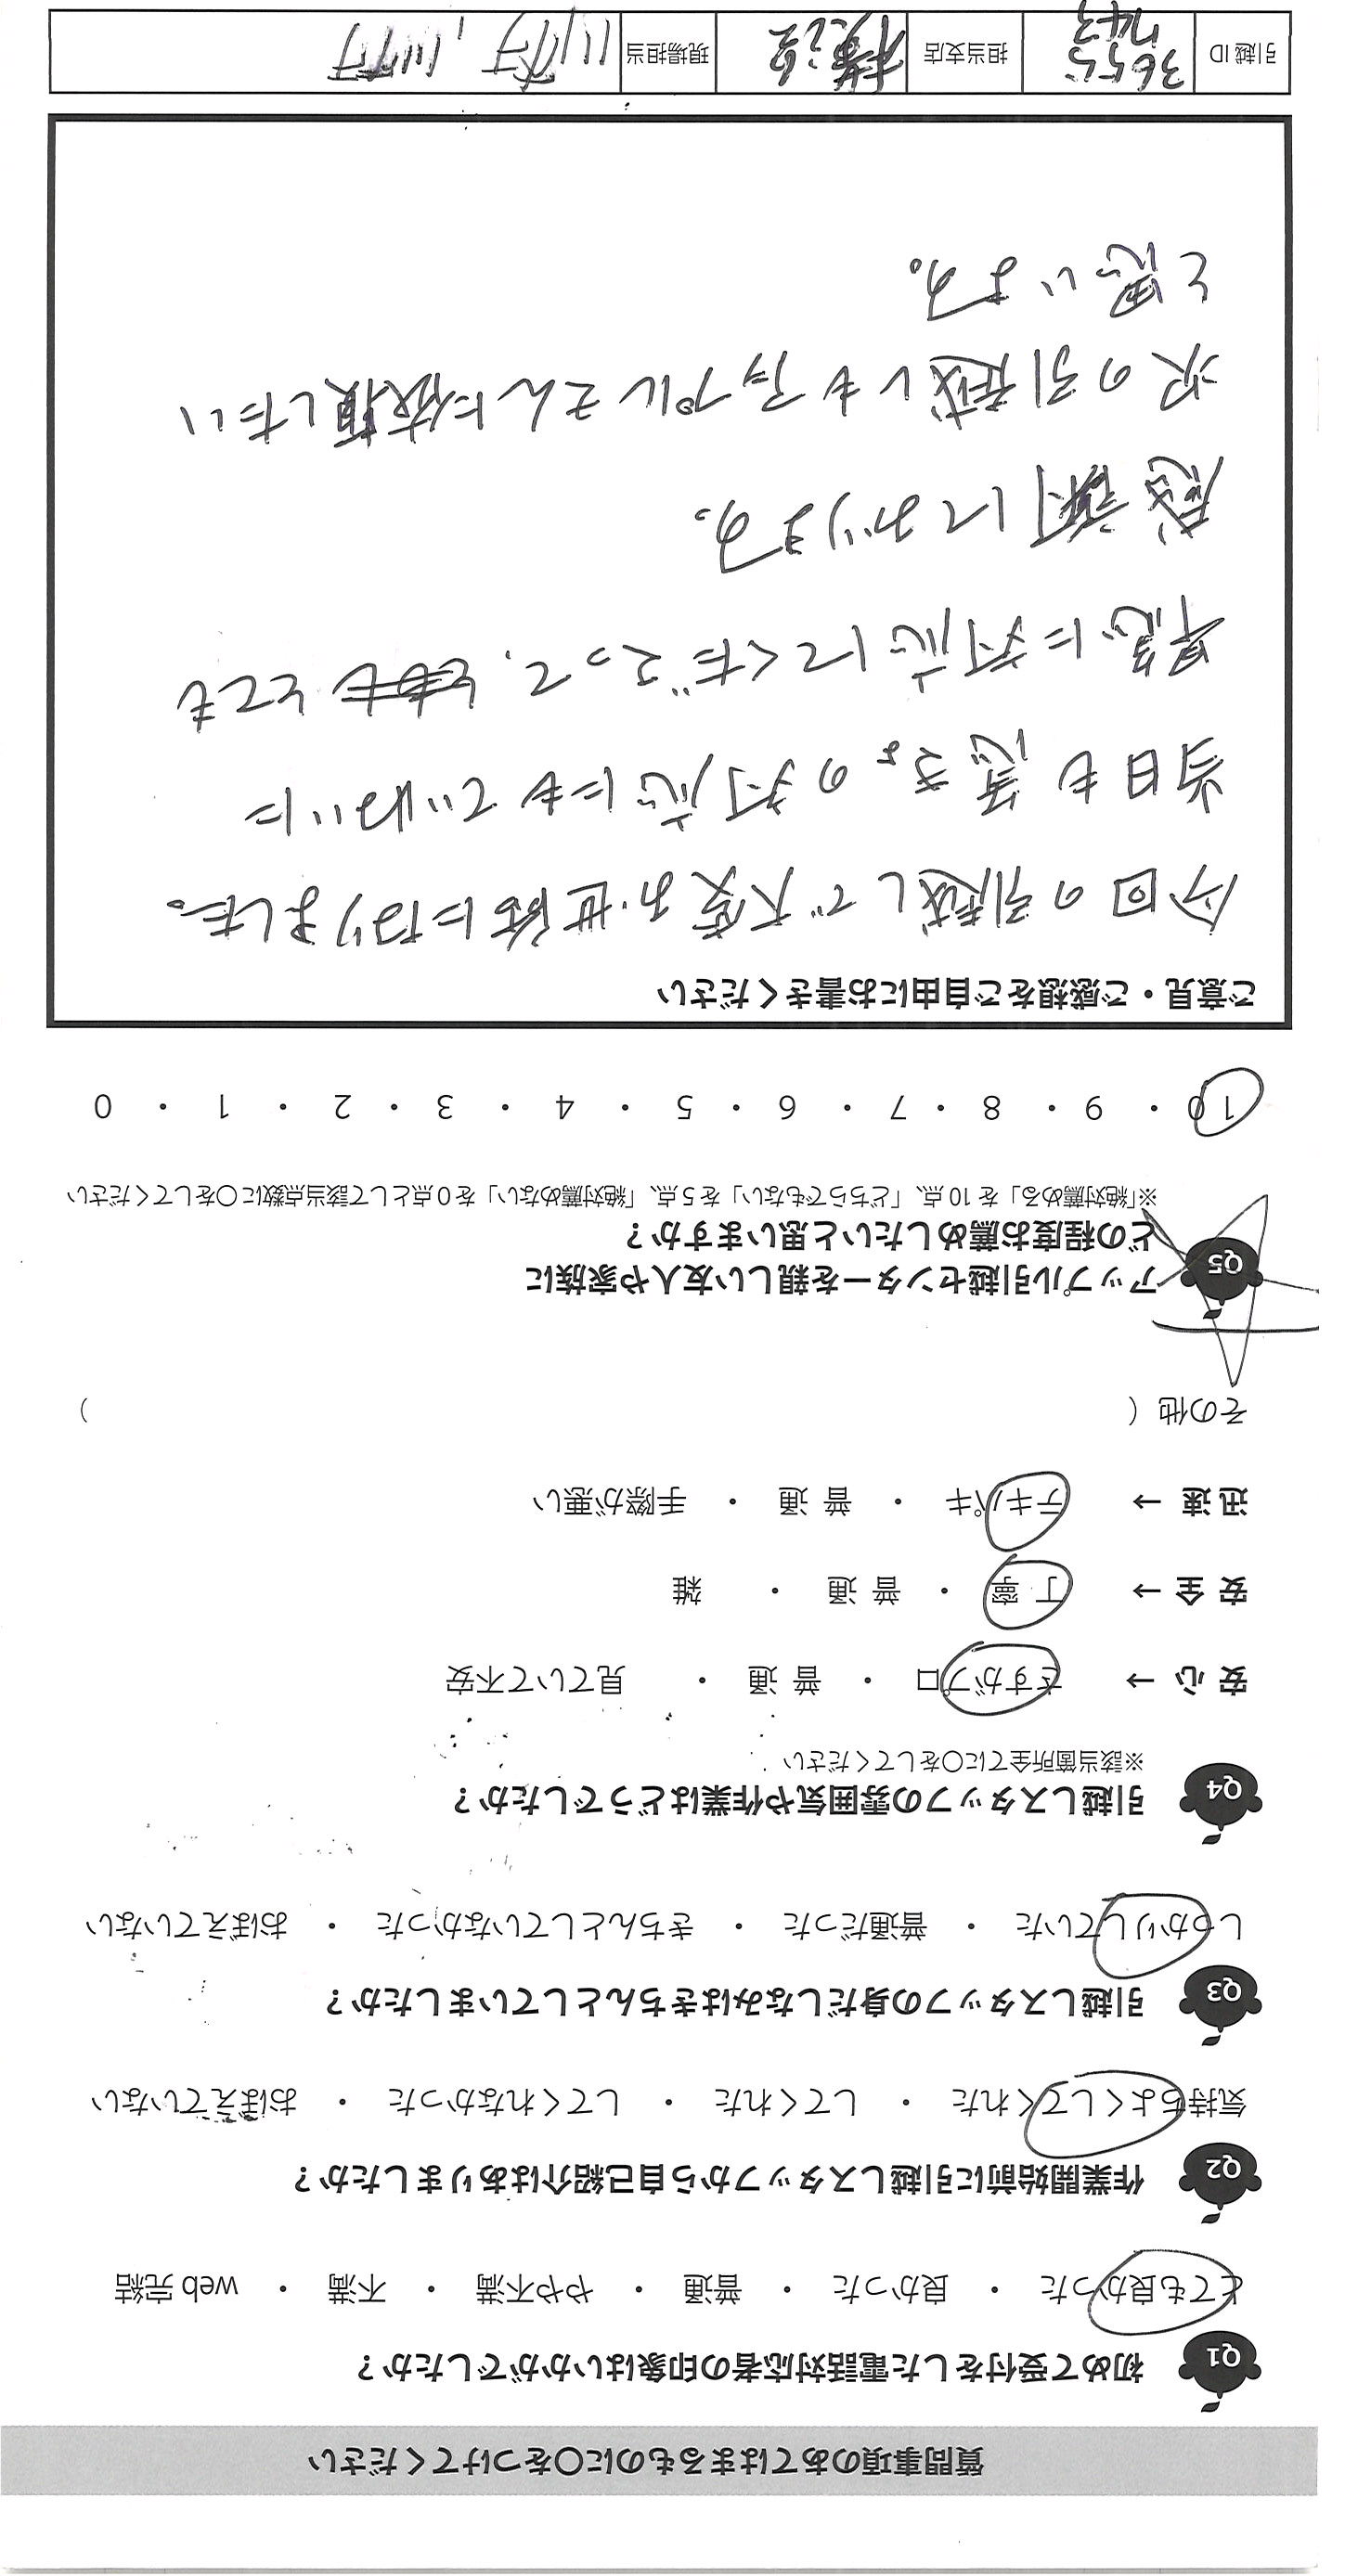 質問事項のあてはまるものに〇をつけてください
Q1 初めて受付をした電話対応者の印象はいかがでしたか？
とても良かった ・ 良かった ・ 普通 ・ やや不満 ・ 不満 ・ web 完結
Q2 作業開始前に引越しスタッフから自己紹介はありましたか？
気持ちよくしてくれた ・ してくれた ・ してくれなかった ・ おぼえていない
Q3 引越しスタッフの身だしなみはきちんとしていましたか？
しっかりしていた ・ 普通だった ・ きちんとしていなかった ・ おぼえていない
Q4 引越しスタッフの雰囲気や作業はどうでしたか？
※該当箇所全てに〇をしてください
安 心 → さすがプロ ・ 普 通 ・ 見ていて不安
安 全 → 丁 寧 ・ 普 通 ・ 雑
迅 速 → テキパキ ・ 普 通 ・ 手際が悪い
その他（ ）
Q5 アップル引越センターを親しい友人や家族に
どの程度お薦めしたいと思いますか？
※「絶対薦める」を 10 点、「どちらでもない」を 5 点、「絶対薦めない」を 0 点として該当点数に〇をしてください
10 ・ 9 ・ 8 ・ 7 ・ 6 ・ 5 ・ 4 ・ 3 ・ 2 ・ 1 ・ 0
ご意見・ご感想をご自由にお書きください
今回の引越しで大変お世話になりました。
当日も急きょの対応にもていねいに
早急に対応してくださって、とても
感謝しております。
次の引越しもアップルさんに依頼したい
と思います。
引越 ID 3655 743 担当支店 横浜 現場担当